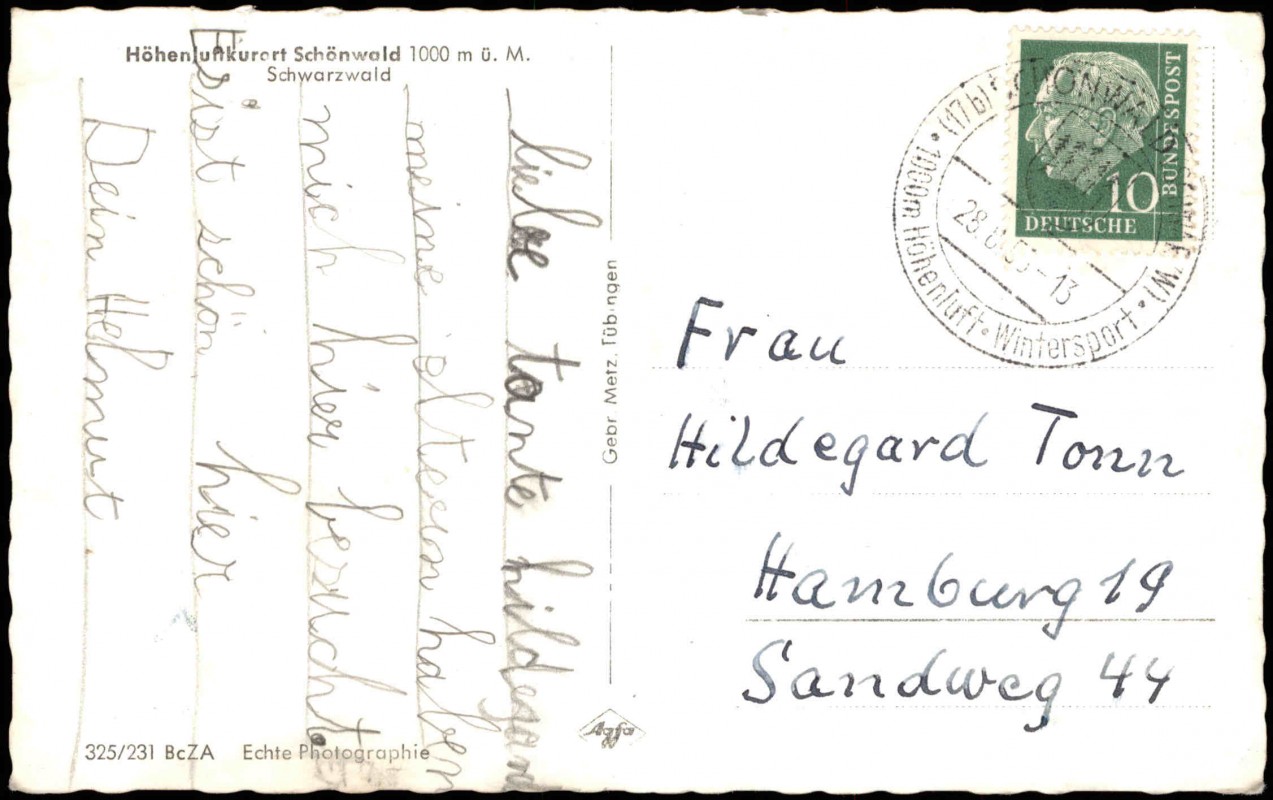 Höhenluftkurort Schönwald 1000 m ü. M.
Schwarzwald
liebe tante hildegard
meine eltern haben
mich hier besucht
Es ist schön hier
Dein Helmut
325/231 BcZA Echte Photographie
Gebr. Metz, Tübingen
Agfa
DEUTSCHE
BUNDESPOST
10
(17b) SCHÖNWALD (SCHWARZW)
1000m Höhenluft · Wintersport
28. -13
Frau
Hildegard Tonn
Hamburg 19
Sandweg 44